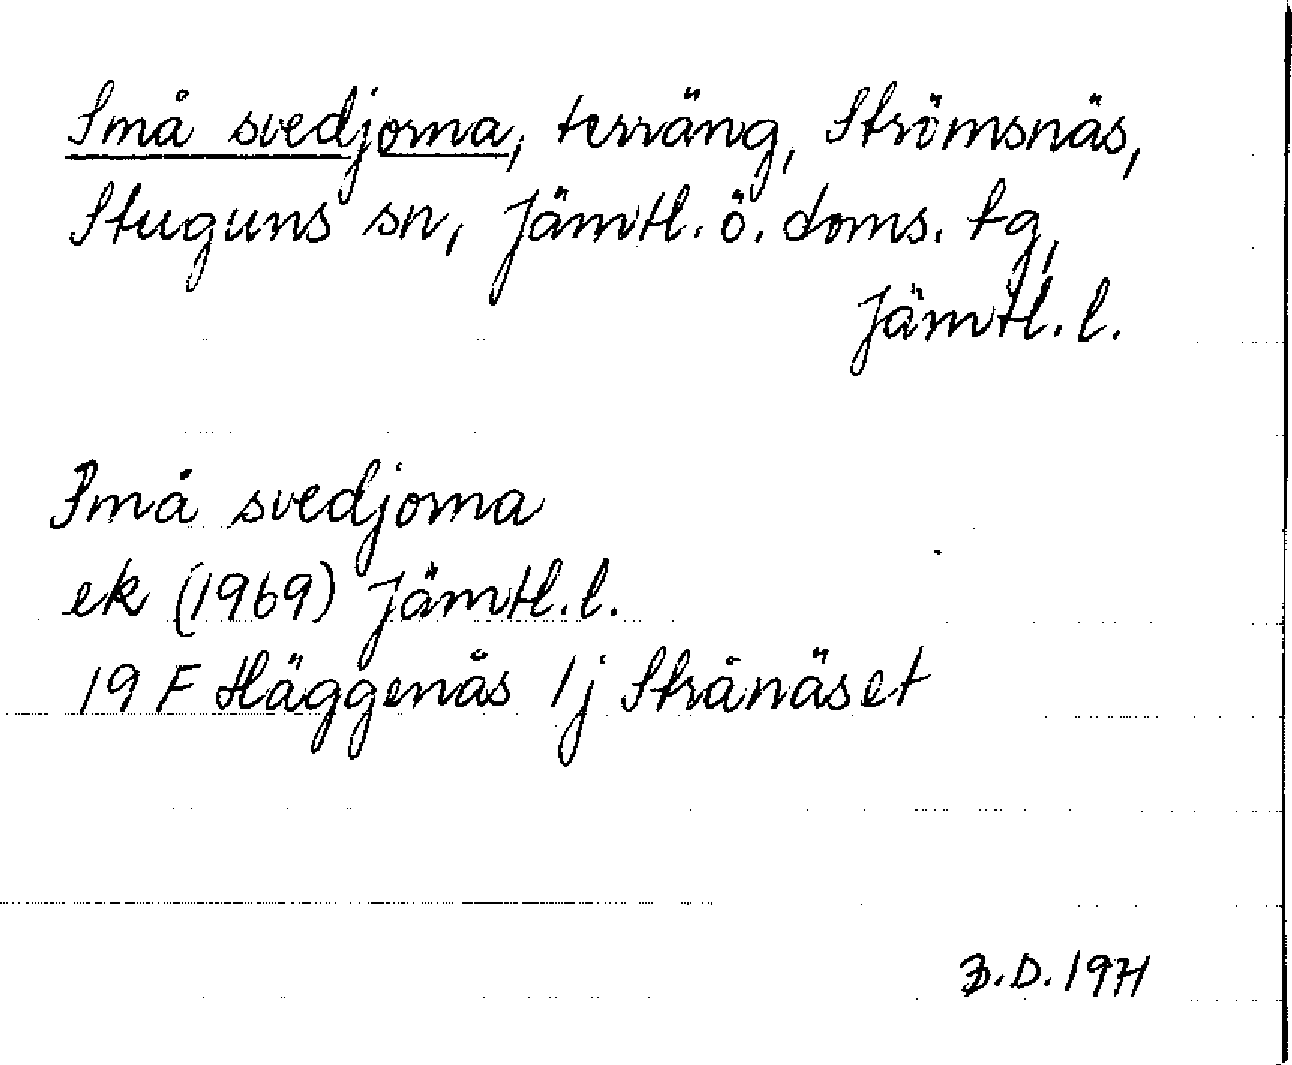 Små svedjorna, terräng, Strömsnäs,
Stuguns sn, Jämtl. ö. doms. tg,
Jämtl. l.
Små svedjorna
ek (1969) Jämtl. l.
19 F Häggenås 1j Strånäset
B.D. 1971